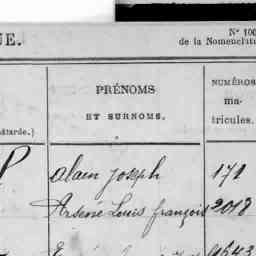 UE.
N° 100
de la Nomenclatu
PRÉNOMS
ET SURNOMS.
NUMÉROS
ma-
tricules.
bâtarde.)
alain Joseph 171
Arsène Louis françois 2018